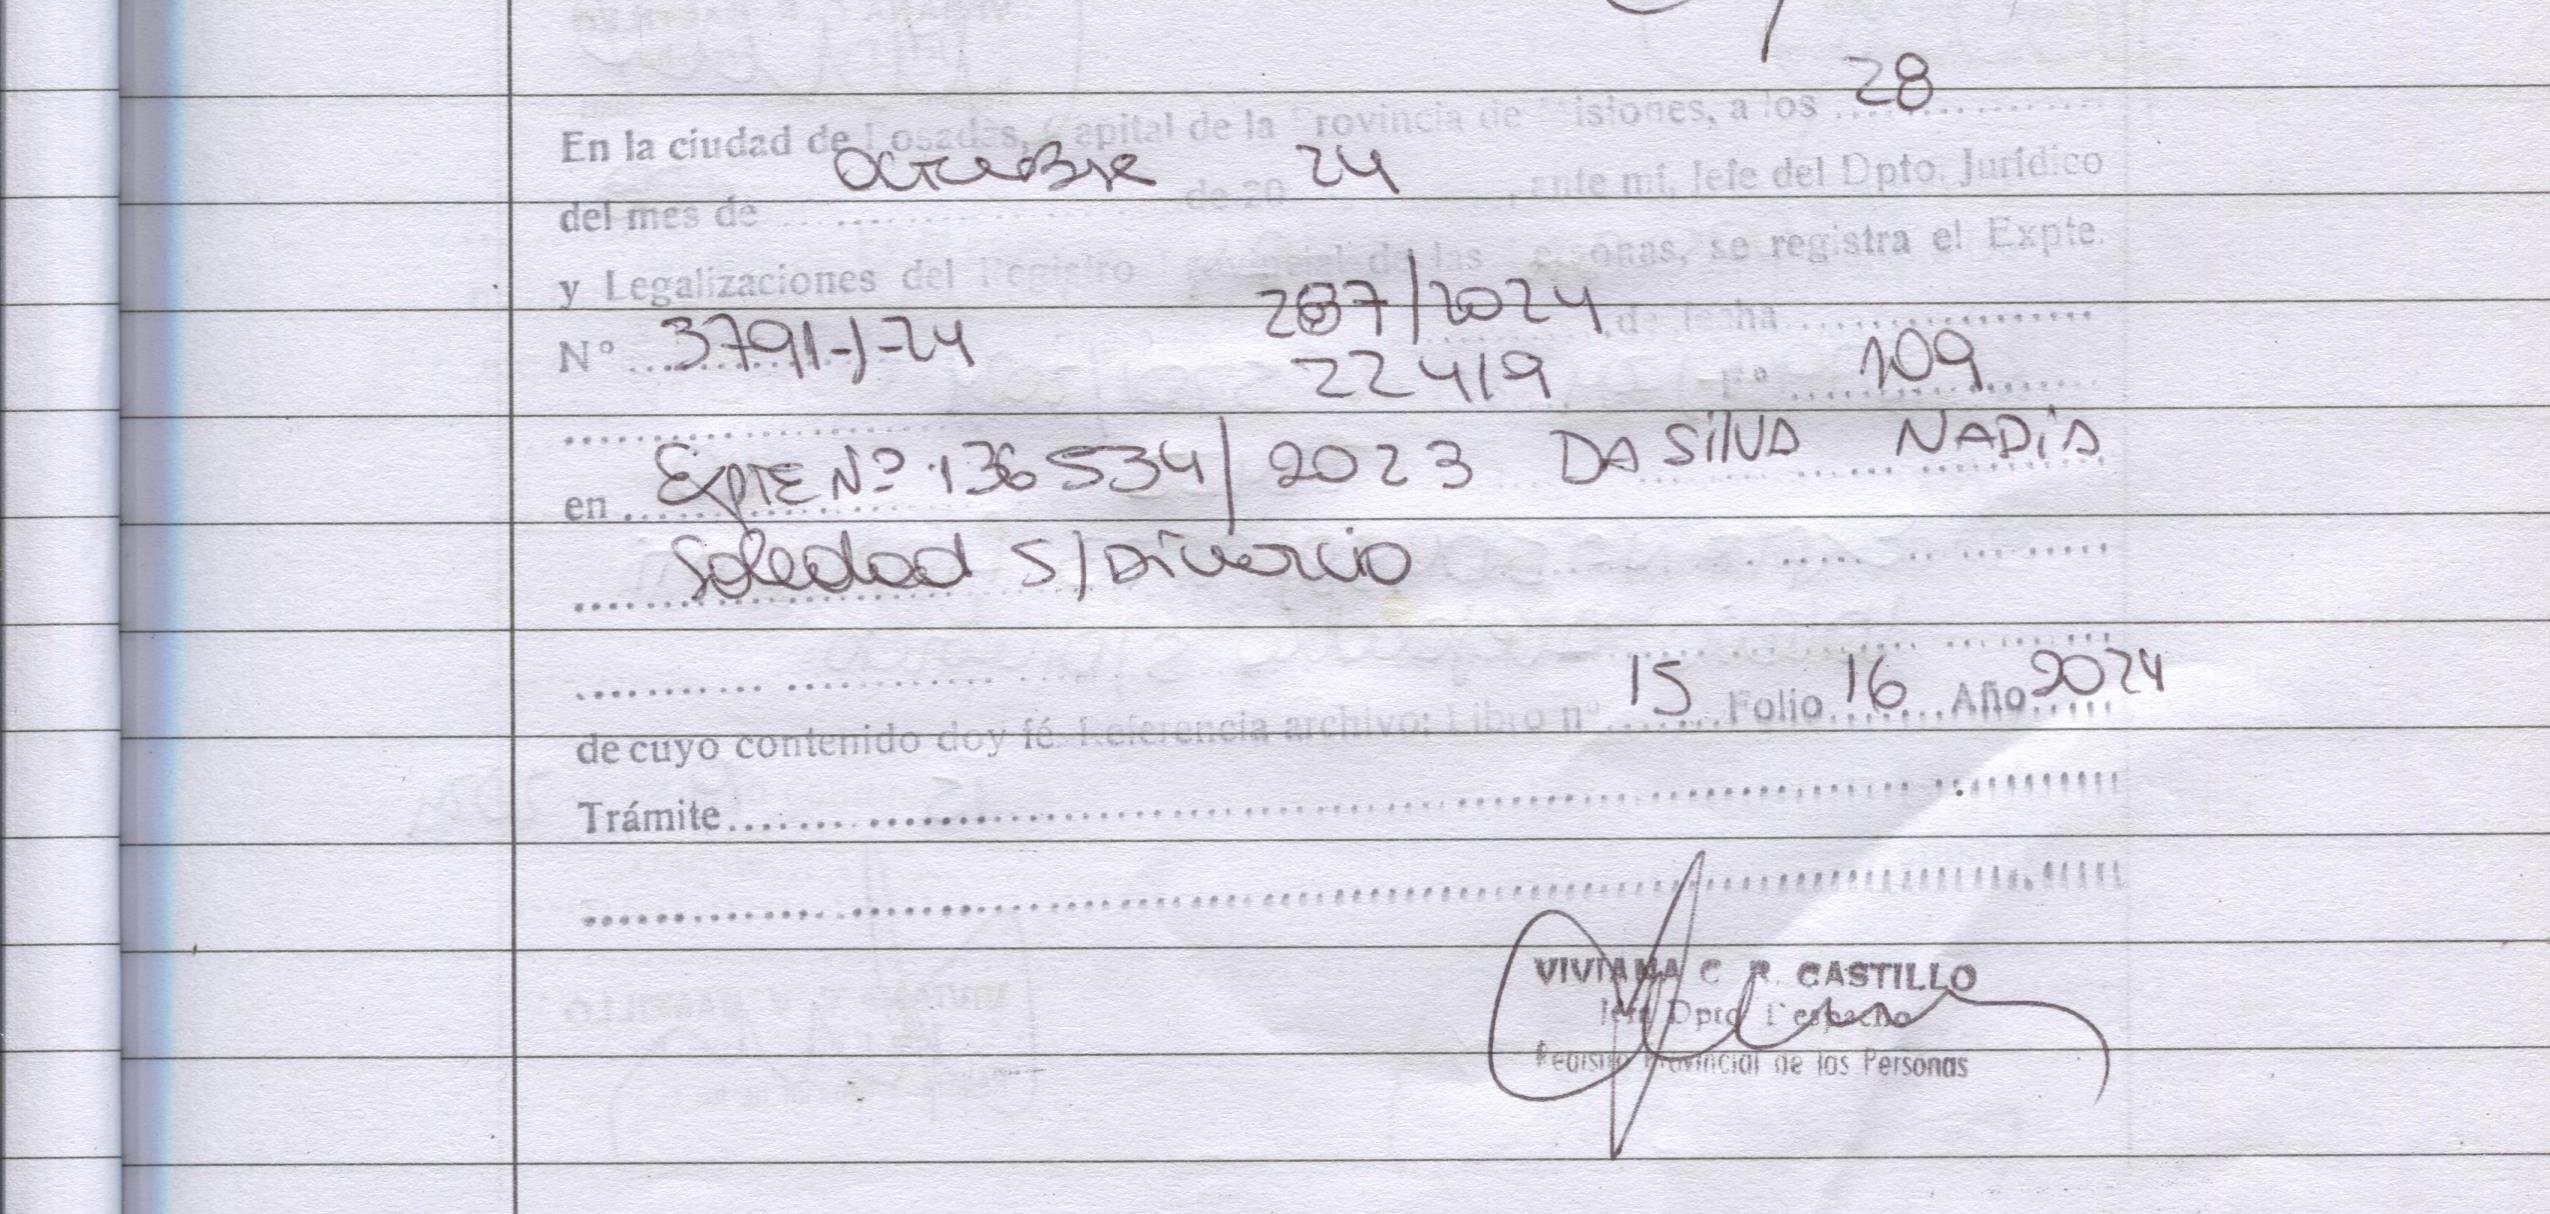 28
En la ciudad de Posadas, Capital de la Provincia de Misiones, a los ..........
octubre 24
del mes de .......... de 20 , ante mí, Jefe del Dpto. Jurídico
y Legalizaciones del Registro Provincial de las Personas, se registra el Expte.
287/2024
Nº 3791-J-24 de fecha ..........
22419 Fº 109
en Expte Nº 136534/2023 DA SILVA NADIA
Soledad S/Divorcio
de cuyo contenido doy fé. Referencia archivo: Libro nº 15 Folio 16 Año 2024
Trámite..........
VIVIANA C. R. CASTILLO
Jefe Dpto. Despacho
Registro Provincial de las Personas